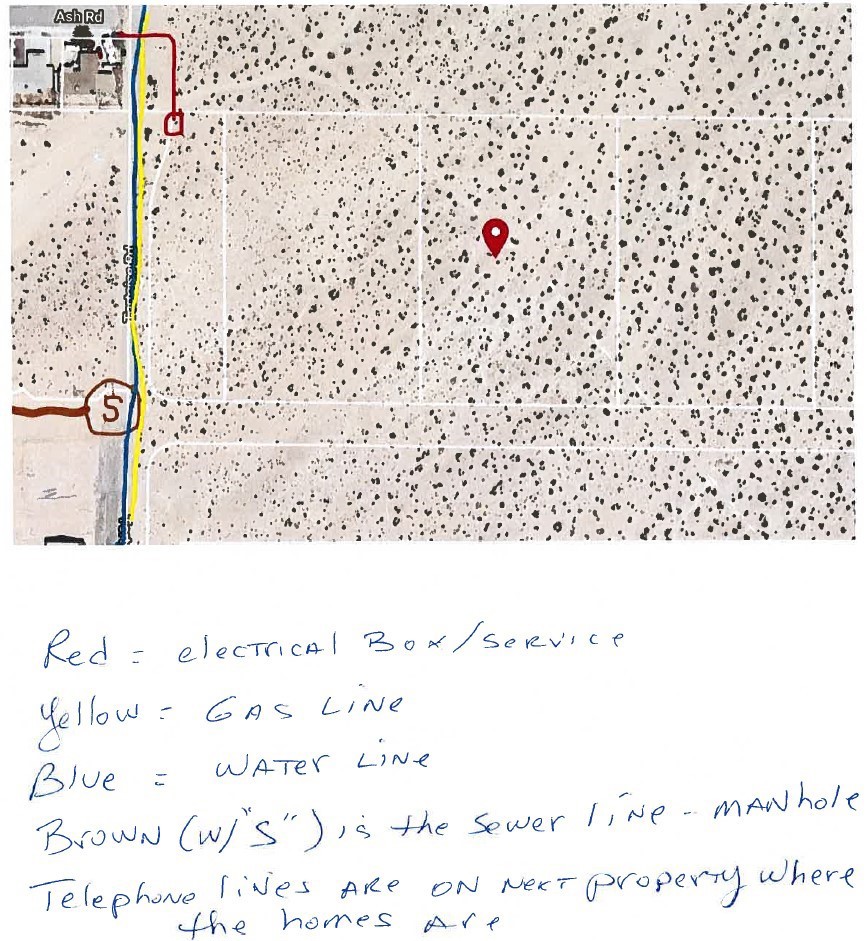 Ash Rd
S
Red = electrical Box/Service
Yellow = GAS LINE
Blue = WATER LINE
BROWN (w/"S") is the sewer line - MANhole
Telephone lines ARE ON NEXT property where
the homes Are